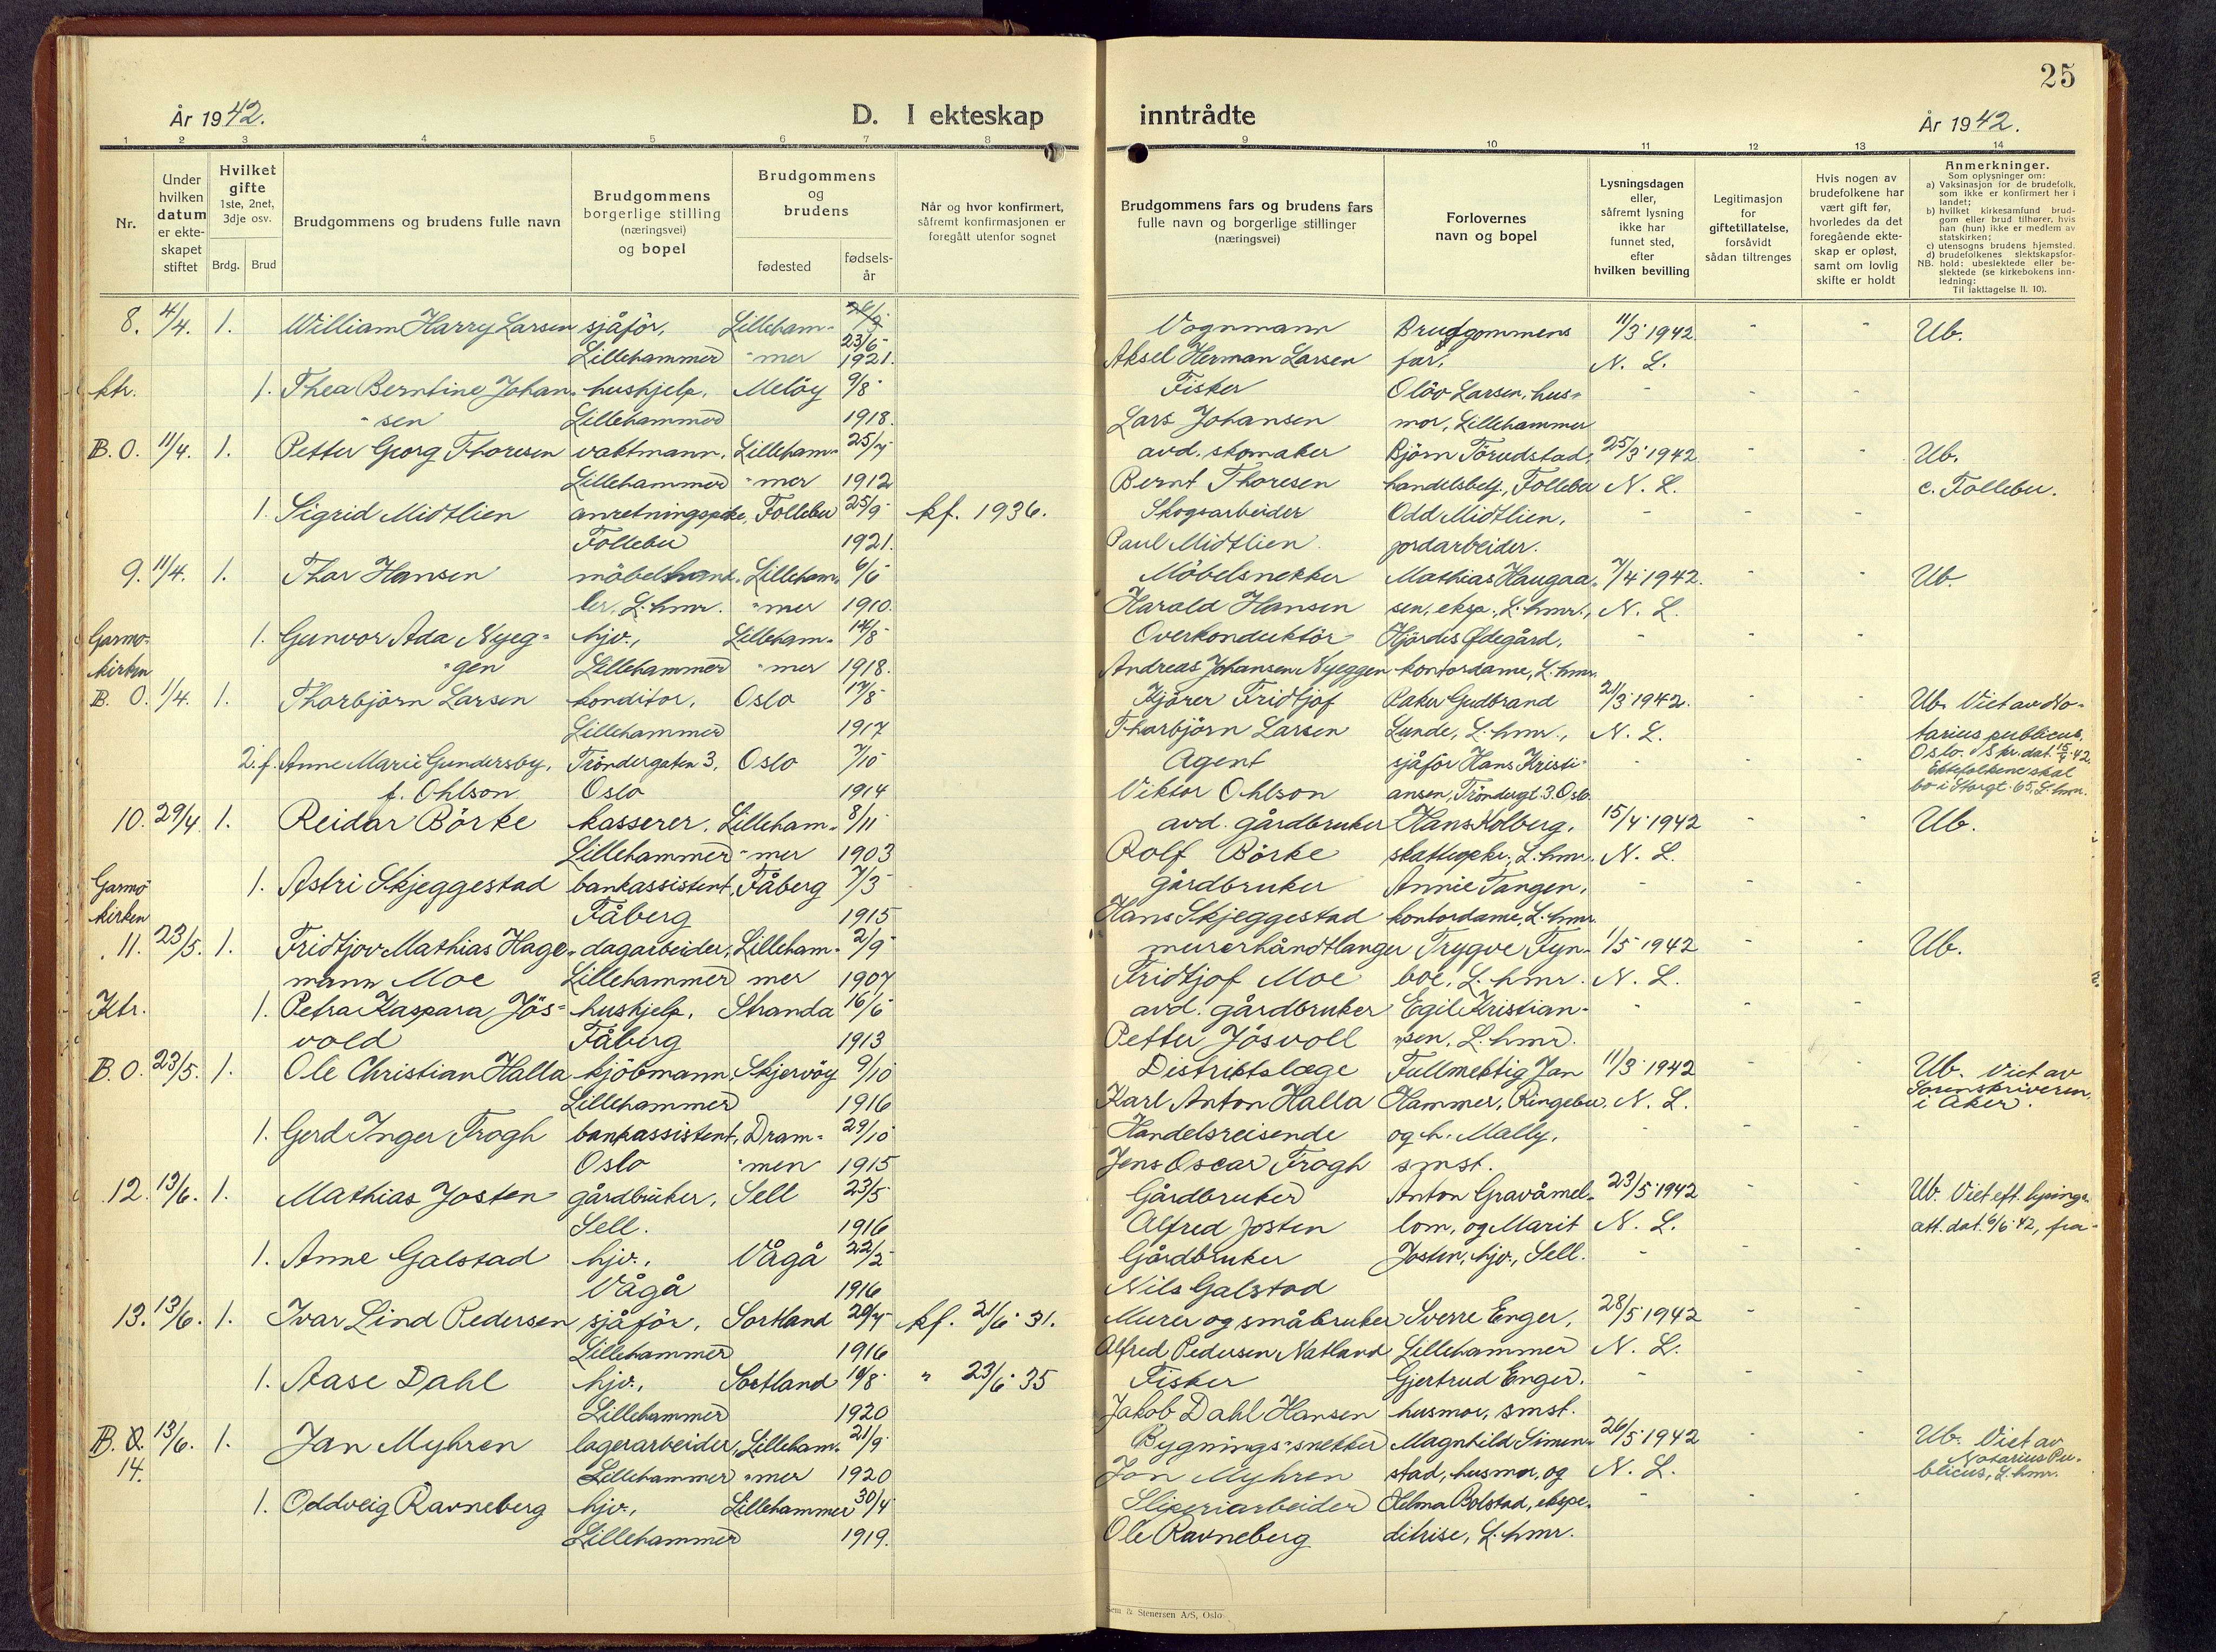 25
År 1942.
D. I ekteskap inntrådte
År 1942.
1 2 3 4 5 6 7 8 9 10 11 12 13 14
Nr.
Under hvilken datum er ekteskapet stiftet
Hvilket gifte 1ste, 2net, 3dje osv.
Brdg. Brud
Brudgommens og brudens fulle navn
Brudgommens borgerlige stilling (næringsvei) og bopel
Brudgommens og brudens
fødested
fødselsår
Når og hvor konfirmert, såfremt konfirmasjonen er foregått utenfor sognet
Brudgommens fars og brudens fars fulle navn og borgerlige stillinger (næringsvei)
Forlovernes navn og bopel
Lysningsdagen eller, såfremt lysning ikke har funnet sted, efter hvilken bevilling
Legitimasjon for giftetillatelse, forsåvidt sådan tiltrenges
Hvis nogen av brudefolkene har vært gift før, hvorledes da det foregående ekteskap er opløst, samt om lovlig skifte er holdt
Anmerkninger.
Som oplysninger om:
a) Vaksinasjon for de brudefolk, som ikke er konfirmert her i landet;
b) hvilket kirkesamfund brudgom eller brud tilhører, hvis han (hun) ikke er medlem av statskirken;
c) utensogns brudens hjemsted.
d) brudefolkenes slektskapsforhold: ubeslektede eller beslektede (se kirkebokens innledning:
NB.
Til iakttagelse II. 10).
8. 4/4. 1. William Harry Larsen sjåför, Lilleham- 23/6 Vognmann Brudgommens 11/3 1942 - - Ub.
Lillehammer -mer 1921. Aksel Herman Larsen far, N. L.
ktr. 1. Thea Berntine Johan- hushjelp, Melöy 9/8 Fisker Olöv Larsen, hus- - - -
-sen Lillehammer 1918. Lars Johansen mor, Lillehammer
B. O. 11/4. 1. Petter Georg Thoresen vaktmann, Lilleham- 25/7 avd. skomaker Björn Törudstad, 25/3 1942 - - Ub.
Lillehammer -mer 1912 Bernt Thoresen handelsbetj., Follebu N. L. c. Follebu.
1. Sigrid Midtlien anretningspike, Follebu 25/9 kf. 1936. Skogsarbeider Odd Midtlien, - - -
Follebu 1921. Paul Midtlien jordarbeider.
9. 11/4. 1. Thor Hansen möbelhand- Lilleham- 6/6 Möbelsnekker Mathias Haugaa- 7/4 1942. - - Ub.
ler, L.hmr. -mer 1910. Harald Hansen sen, eksp., L.hmr., N. L.
Garmo- 1. Gunvor Ada Nyeg- hjv., Lilleham- 14/8 Overkonduktör Hjördis Ødegård, - - -
kirken -gen Lillehammer -mer 1918. Andreas Johansen Nyeggen kontordame, L.hmr.
B. O. 1/4. 1. Thorbjörn Larsen konditor, Oslo 17/8 Kjörer Fridtjof Baker Gudbrand 21/3 1942. - - Ub. Viet av No-
Lillehammer 1917 Thorbjörn Larsen Lunde, L.hmr., N. L. tarius publicus,
2. f. Anne Marie Gundersby, Tröndergaten 3, Oslo 7/10 Agent sjåför Hans Kristi- - - - Oslo. Skr. dat. 15/4 42.
f. Ohlson Oslo 1914 Viktor Ohlson ansen, Tröndergt. 3. Oslo. Ektefolkene skal
bo i Storgt. 65, L.hmr.
10. 29/4 1. Reidar Börke kasserer, Lilleham- 8/11 avd. gårdbruker Hans Kolberg, 15/4 1942 - - Ub.
Lillehammer -mer 1903 Rolf Börke L.hmr. N. L.
Garmo- 1. Astri Skjeggestad bankassistent, Fåberg 7/3 gårdbruker Annie Tangen, - - -
kirken Fåberg 1915 Hans Skjeggestad kontordame, L.hmr.
11. 23/5. 1. Fridtjov Mathias Hage- dagarbeider, Lilleham- 2/9 murerhåndtlanger Trygve Fyn- 1/5 1942 - - Ub.
mann Moe Lillehammer mer 1907 Fridtjof Moe boe, L.hmr. N. L.
Ktr. 1. Petra Kaspara Jös- hushjelp, Stranda 16/6 avd. gårdbruker Egil Kristian- - - -
vold Fåberg 1913 Petter Jösvoll sen, L.hmr.
B. O. 23/5. 1. Ole Christian Halla kjöbmann, Skjervöy 9/10 Distriktslæge Fullmektig Jan 11/3 1942 - - Ub. Viet av
Lillehammer 1916 Karl Anton Halla Hammer, Ringebu, N. L. Sorenskriveren
i Aker.
1. Gerd Inger Trogh bankassistent, Dram- 29/10 Handelsreisende og h. Mally, - - -
Oslo -men 1915 Jens Oscar Trogh smst.
12. 13/6. 1. Mathias Josten gårdbruker, Sell 23/5 Gårdbruker Anton Gravåmel- 23/5 1942 - - Ub. Viet eft. lysings-
Sell. 1916 Alfred Josten lom, og Marit N. L. att. dat. 6/6 42, fra-
1. Anne Galstad hjv., Vågå 22/2 Gårdbruker Josten, hjv., Sell. - - -
Vågå 1916 Nils Galstad
13. 13/6. 1. Ivar Lind Pedersen sjåför, Sortland 20/4 kf. 21/6 31. Murer og småbruker Sverre Enger, 28/5 1942 - -
Lillehammer 1916 Alfred Pedersen Natland Lillehammer N. L.
1. Aase Dahl hjv., Sortland 10/8 " 23/6 35 Fisker Gjertrud Enger, - - -
Lillehammer 1920 Jakob Dahl Hansen husmor, smst.
B. O. 13/6. 1. Jan Myhren lagerarbeider, Lilleham- 21/9 Bygnings-snekker Magnhild Simen- 26/5 1942 - - Ub. Viet av
14. Lillehammer -mer 1920 Jon Myhren stad, husmor, og N. L. Notarius Pu-
blicus, L.hmr.
1. Oddveig Ravneberg hjv., Lillehammer 30/4 Sliperiarbeider Helma Bolstad, ekspe- - - -
Lillehammer 1919. Ole Ravneberg ditrise, L.hmr.
Sem & Stenersen A/S, Oslo